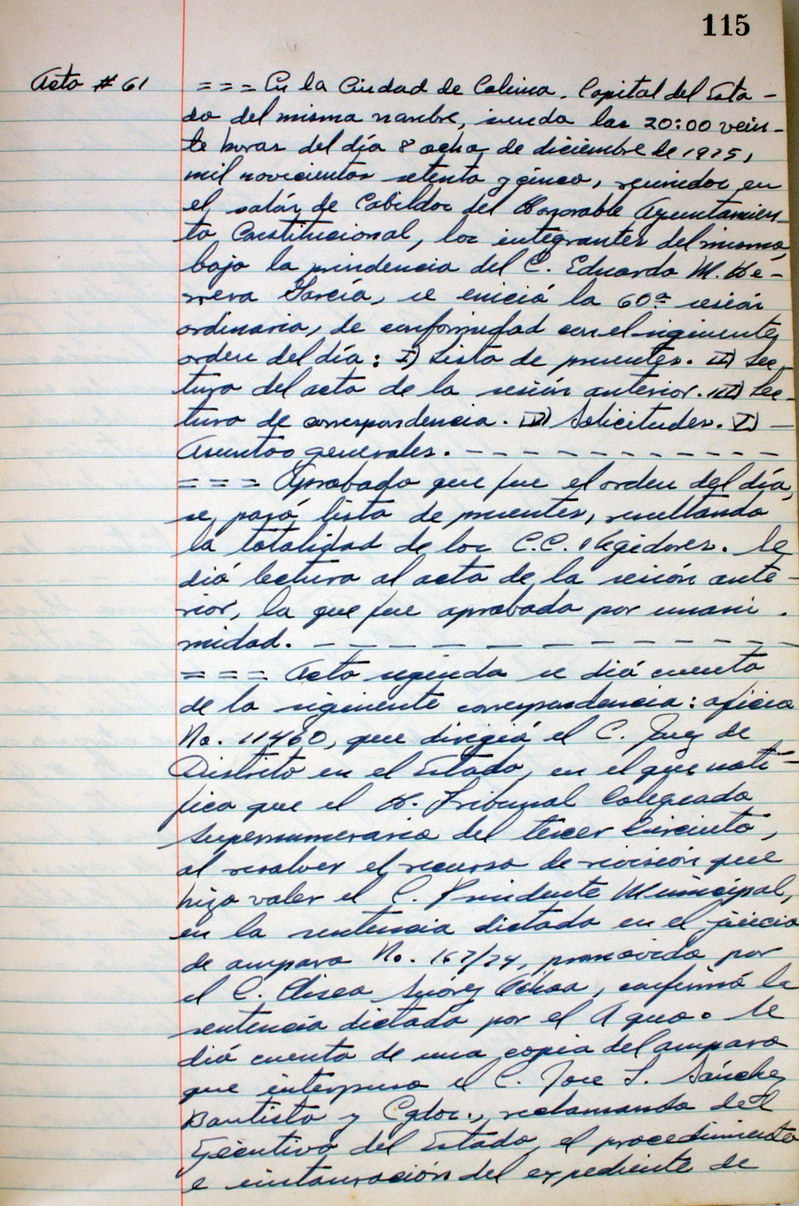 115
Acta # 61
=== En la Ciudad de Colima, Capital del Esta-
do del mismo nombre, siendo las 20:00 vein-
te horas del día 8 ocho de diciembre de 1975,
mil novecientos setenta y cinco, reunidos en
el salón de Cabildos del Honorable Ayuntamien-
to Constitucional, los integrantes del mismo,
bajo la presidencia del C. Eduardo M. He-
rrera García, se inició la 60a sesión
ordinaria, de conformidad con el siguiente
orden del día: I) Lista de presentes. II) Lec-
tura del acta de la sesión anterior. III) Lec-
tura de correspondencia. IV) Solicitudes. V) -
Asuntos generales. - - - - - - - - - - -
=== Aprobado que fue el orden del día,
se pasó lista de presentes, resultando
la totalidad de los C.C. Regidores. Se
dió lectura al acta de la sesión ante-
rior, la que fue aprobada por unani-
midad. - - - - - - - - - - - - -
=== Acto seguido se dió cuenta
de la siguiente correspondencia: oficio
No. 11460, que dirigió el C. Juez de
Distrito en el Estado, en el que noti-
fica que el H. Tribunal Colegiado
Supernumerario del tercer Circuito,
al resolver el recurso de revisión que
hizo valer el C. Presidente Municipal,
en la sentencia dictada en el juicio
de amparo No. 167/74, promovido por
el C. Eliseo Suárez Ochoa, confirmó la
sentencia dictada por el A quo. Se
dió cuenta de una copia del amparo
que interpuso el C. Jose S. Sánchez
Bautista y Cgdos., reclamando del
Ejecutivo del Estado, el procedimiento
e instauración del expediente de